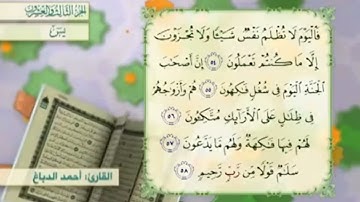 الجزء الثالث والعشرون
يسٓ
فَٱلْيَوْمَ لَا تُظْلَمُ نَفْسٌ شَيْـًٔا وَلَا تُجْزَوْنَ
إِلَّا مَا كُنتُمْ تَعْمَلُونَ ٥٤ إِنَّ أَصْحَٰبَ
ٱلْجَنَّةِ ٱلْيَوْمَ فِى شُغُلٍ فَٰكِهُونَ ٥٥ هُمْ وَأَزْوَٰجُهُمْ
فِى ظِلَٰلٍ عَلَى ٱلْأَرَآئِكِ مُتَّكِـُٔونَ ٥٦
لَهُمْ فِيهَا فَٰكِهَةٌ وَلَهُم مَّا يَدَّعُونَ ٥٧
سَلَٰمٌ قَوْلًا مِّن رَّبٍّ رَّحِيمٍ ٥٨
القارئ: أحمد الدباغ